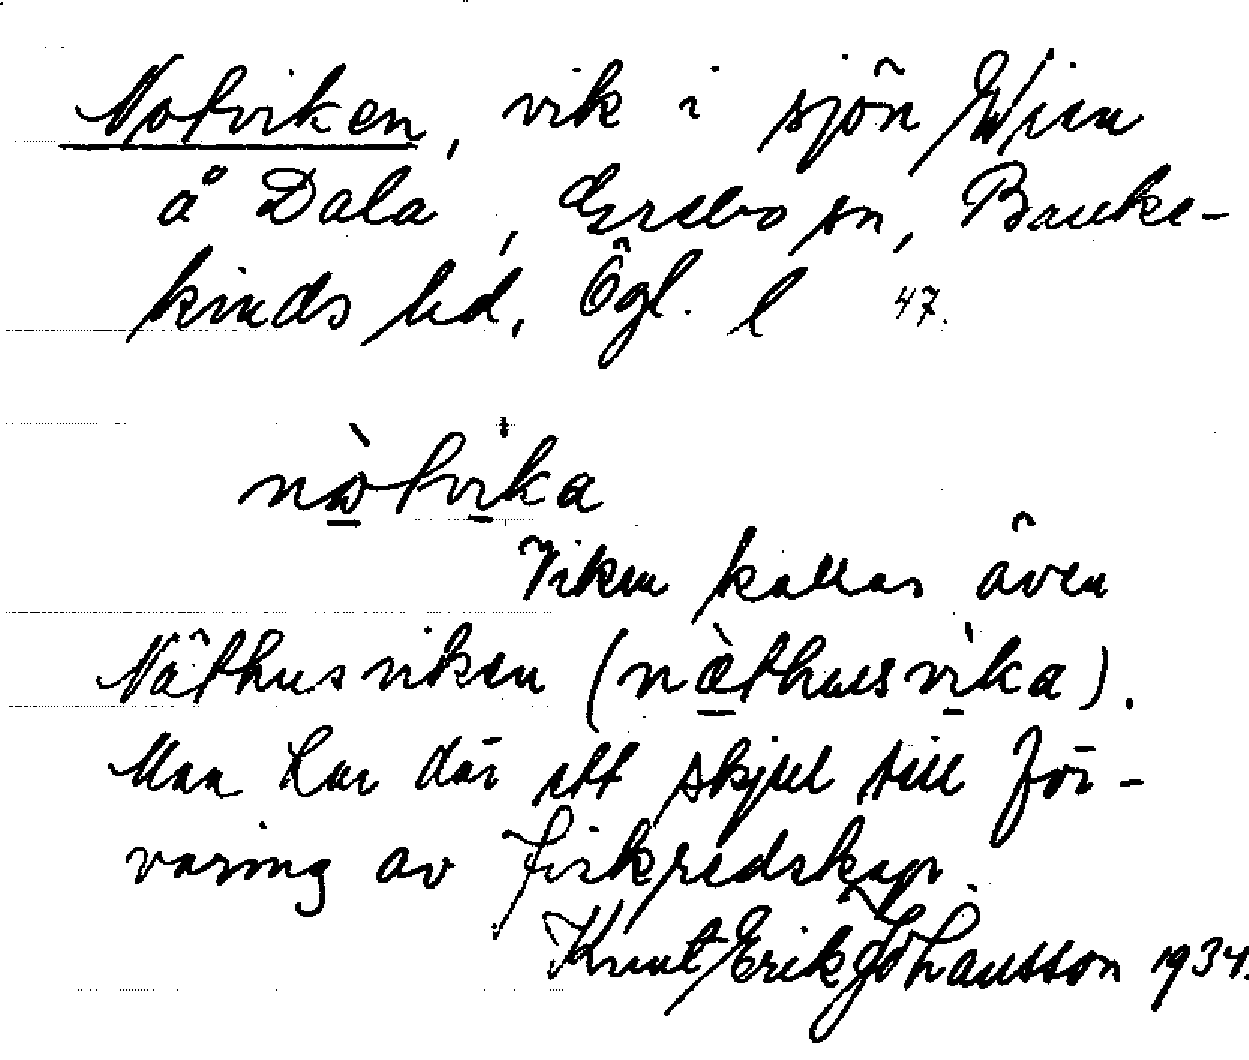 Notviken, vik i sjön
å Dala, Gusebo sn, Banke-
kinds hd, Ögl. l 47.
nòtvika
Viken kallas även
Näthusviken (næ̀thusvika).
Man har där ett skjul till för-
varing av fiskredskap.
Knut Erik Johansson 1934.